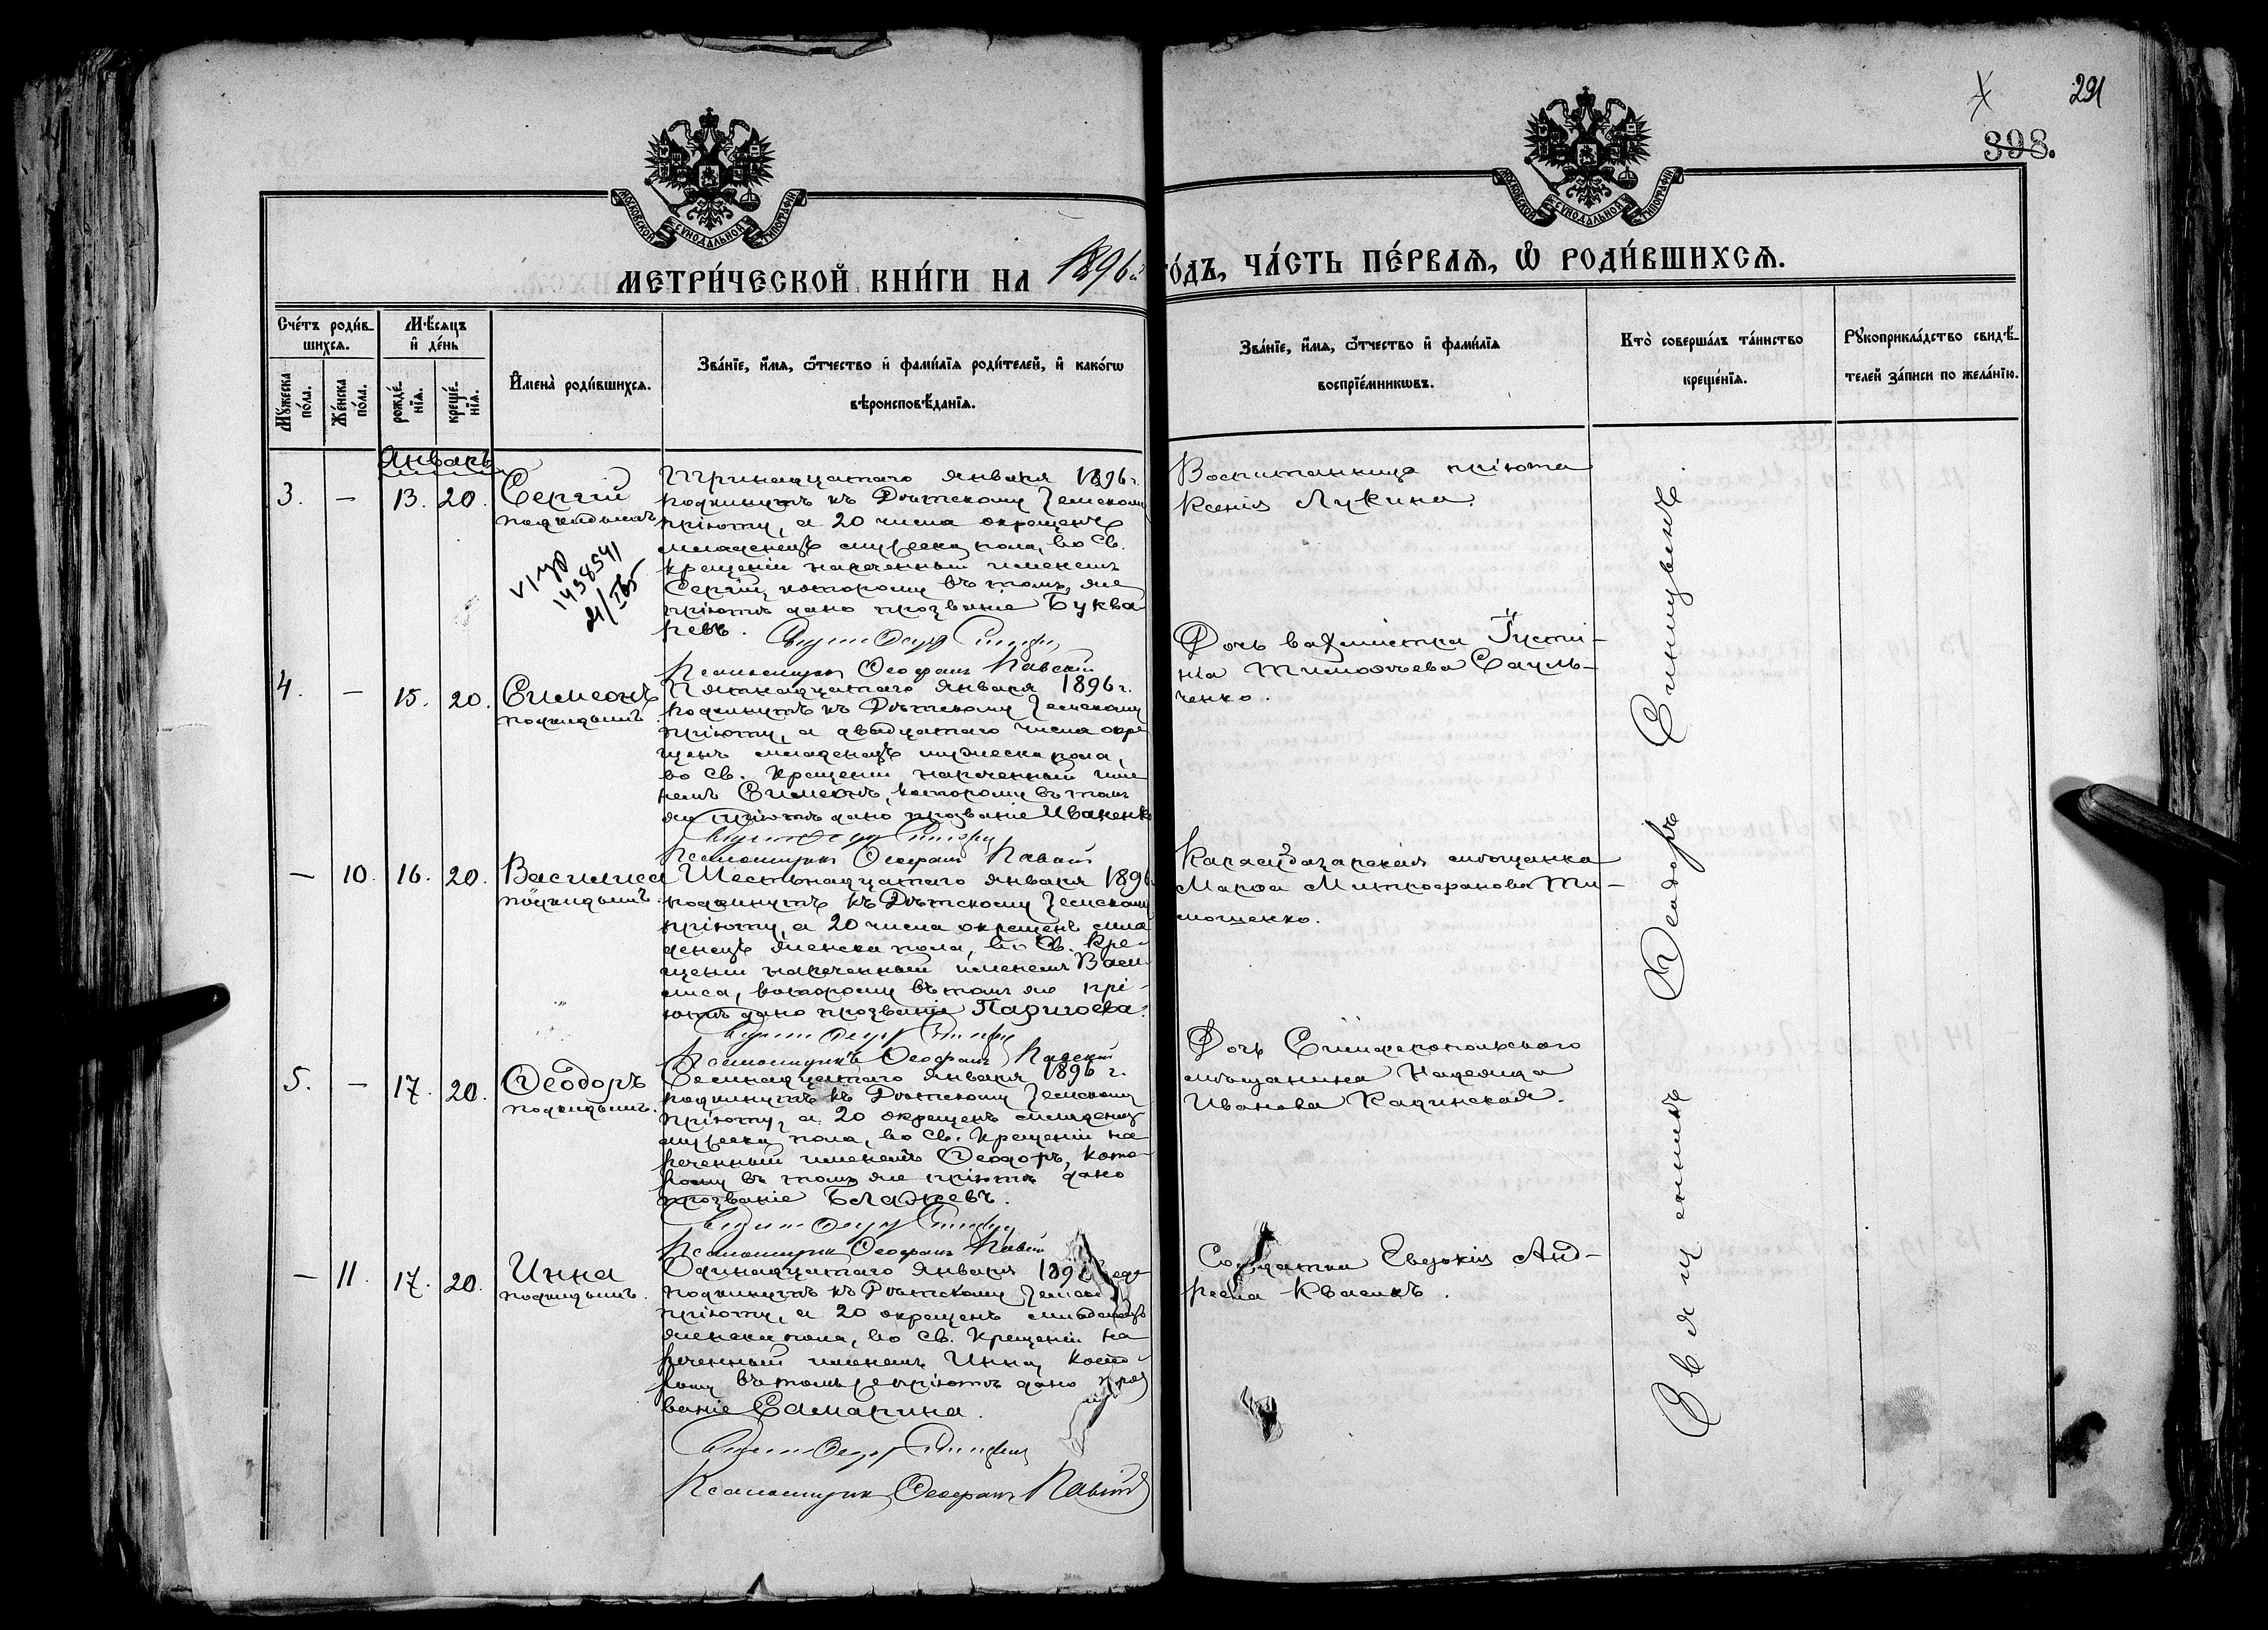 291
398.
МОСКОВСКОЙ СѴНОДАЛЬНОЙ ТИПОГРАФІИ
МОСКОВСКОЙ СѴНОДАЛЬНОЙ ТИПОГРАФІИ
МЕТРИ́ЧЕСКОЙ КНИ́ГИ НА 1896й
ГО́ДЪ, ЧА́СТЬ ПЕ́РВАѦ, Ѿ РОДИ́ВШИХСѦ.
Сче́тъ роди́в-
шихсѧ.
Мꙋ́жеска
по́ла.
Же́нска
по́ла.
Мѣ́сѧцъ
и҆ де́нь
рожде́-
нїѧ.
креще́-
нїѧ.
И҆мена̀ роди́вшихсѧ.
Зва́нїе, и҆́мѧ, ѻ҆́тчество и҆ фами́лїѧ роди́телей, и҆ како́гѡ
вѣроисповѣ́данїѧ.
Зва́нїе, и҆́мѧ, ѻ҆́тчество и҆ фами́лїѧ
воспрїе́мникѡвъ.
Кто̀ соверша́лъ та́инство
креще́нїѧ.
Рꙋкоприкла́дство свидѣ́-
телей за́писи по жела́нїю.
Январь
3. – 13. 20. Сергій
подкидышъ
Тринадцатаго Января 1896 г.
подкинутъ къ Дѣтскому Земскому
пріюту, а 20 числа окрещенъ
младенецъ мужеска пола, во Св.
крещеніи нареченный именемъ
Сергій, которому въ томъ же
пріютѣ дано прозваніе Буква-
ревъ.
Псаломщикъ Ѳеофанъ Павскій
Воспитанница пріюта
Ксенія Лукина.
4. – 15. 20. Симеонъ
подкидышъ
Пятнадцатаго Января 1896 г.
подкинутъ къ Дѣтскому Земскому
пріюту, а двадцатаго числа окре
щенъ младенецъ мужеска пола,
во Св. Крещеніи нареченный име
немъ Симеонъ, которому въ томъ
же пріютѣ дано прозваніе Иваненко
Псаломщикъ Ѳеофанъ Павскій
Дочь вахмистра Густи-
на Тимоѳеева Сауль-
ченко.
– 10. 16. 20. Василиса
подкидышъ.
Шестьнадцатаго Января 1896
подкинутъ къ Дѣтскому Земскому
пріюту, а 20 числа окрещенъ мла
денецъ женска пола, во Св. Кре-
щеніи нареченный именемъ Васи-
лиса, которому въ томъ же прі-
ютѣ дано прозваніе
Псаломщикъ Ѳеофанъ Павскій
Карасубазарская мѣщанка
Марѳа Митрофанова Ти-
мошенко.
5. – 17. 20. Ѳеодоръ
подкидышъ.
Семнадцатаго Января 1896 г.
подкинутъ къ Дѣтскому Земскому
пріюту, а 20 окрещенъ младенецъ
мужеска пола, во Св. Крещеніи на
реченный именемъ Ѳеодоръ, кото-
рому въ томъ же пріютѣ дано
прозваніе Блажевъ.
Псаломщикъ Ѳеофанъ Павскій
Дочь Симферопольскаго
мѣщанина Надежда
Иванова Кадинская.
– 11. 17. 20. Инна
подкидышъ.
Одинадцатаго Января 189
подкинутъ къ Дѣтскому
пріюту, а 20 окрещенъ младенецъ
женска пола, во Св. Крещеніи на
реченный именемъ Инна, кото-
рому въ томъ же пріютѣ дано проз
ваніе Самарина.
Псаломщикъ Ѳеофанъ Павскій
Солдатка Евдокія Анд-
реева Квасикъ.
Священникъ Ѳеодоръ